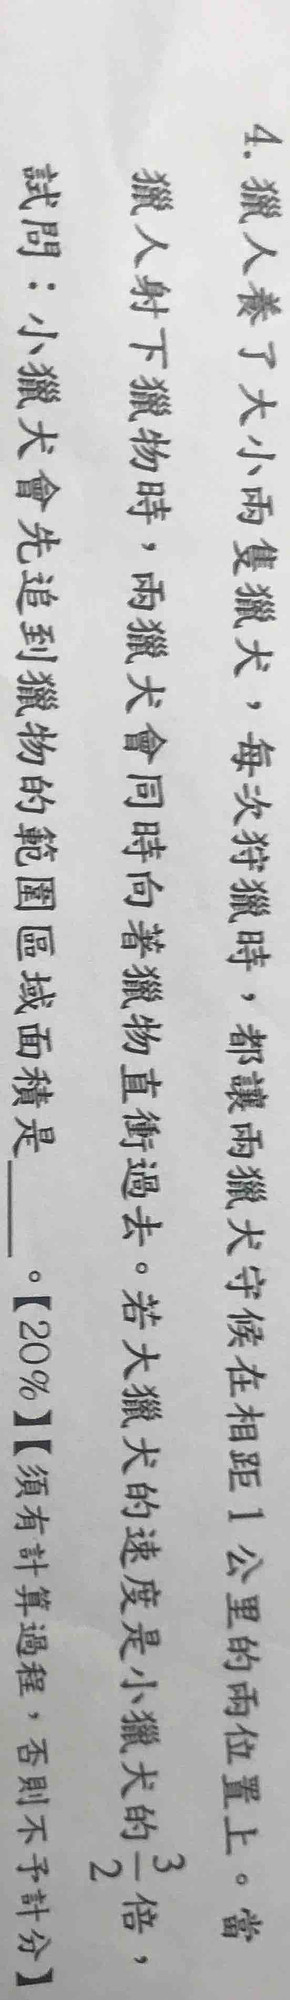 4. 獵人養了大小兩隻獵犬，每次狩獵時，都讓兩獵犬守候在相距1公里的兩位置上。當
獵人射下獵物時，兩獵犬會同時向著獵物直衝過去。若大獵犬的速度是小獵犬的3/2倍，
試問：小獵犬會先追到獵物的範圍區域面積是____。【20%】【須有計算過程，否則不予計分】